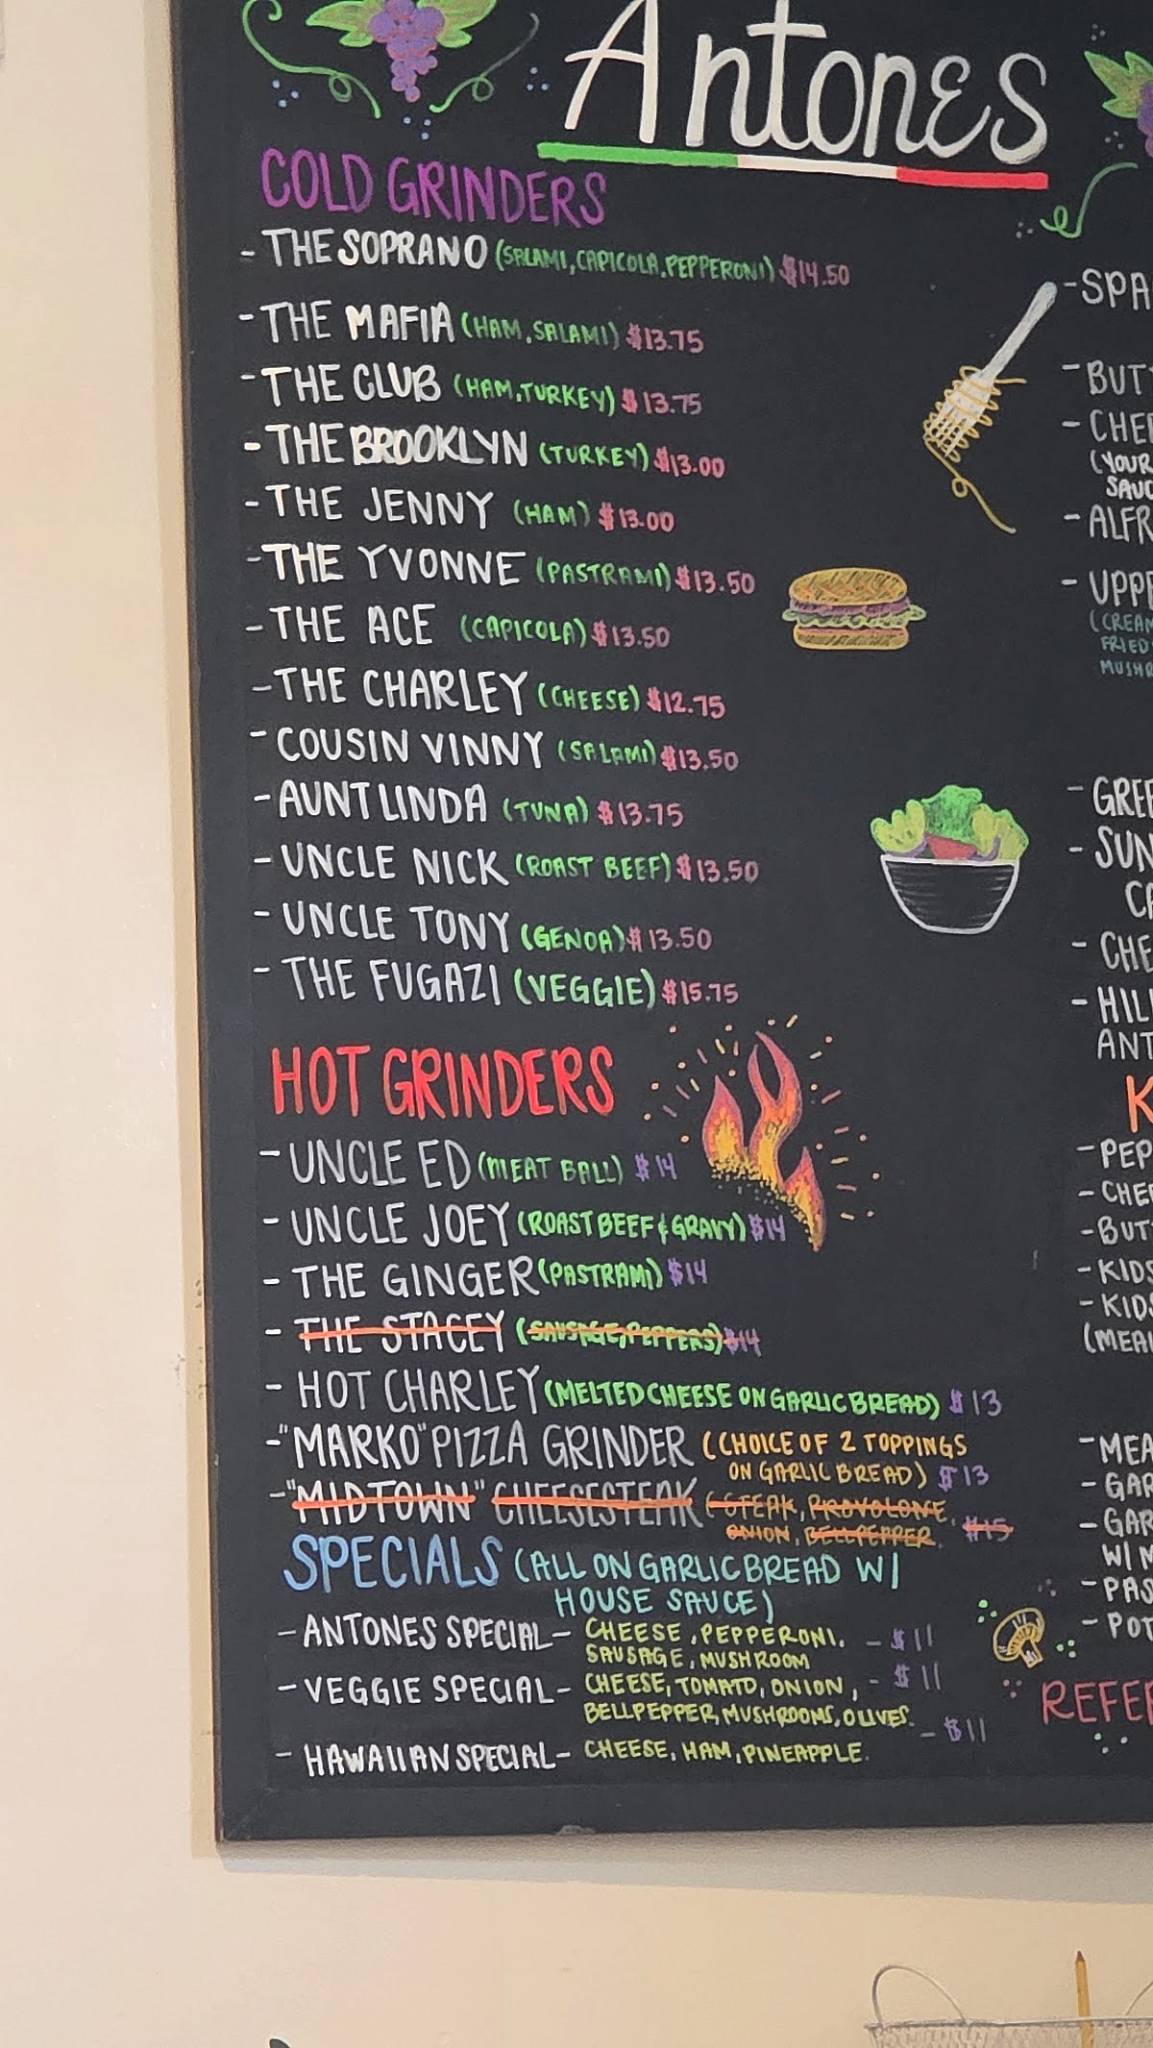 Antones
COLD GRINDERS
- THE SOPRANO (SALAMI, CAPICOLA, PEPPERONI) $14.50
- THE MAFIA (HAM, SALAMI) $13.75
- THE CLUB (HAM, TURKEY) $13.75
- THE BROOKLYN (TURKEY) $13.00
- THE JENNY (HAM) $13.00
- THE YVONNE (PASTRAMI) $13.50
- THE ACE (CAPICOLA) $13.50
- THE CHARLEY (CHEESE) $12.75
- COUSIN VINNY (SALAMI) $13.50
- AUNT LINDA (TUNA) $13.75
- UNCLE NICK (ROAST BEEF) $13.50
- UNCLE TONY (GENOA) $13.50
- THE FUGAZI (VEGGIE) $15.75
HOT GRINDERS
- UNCLE ED (MEAT BALL) $14
- UNCLE JOEY (ROAST BEEF & GRAVY) $14
- THE GINGER (PASTRAMI) $14
- THE STACEY (SAUSAGE, PEPPERS) $14
- HOT CHARLEY (MELTED CHEESE ON GARLIC BREAD) $13
- "MARKO" PIZZA GRINDER (CHOICE OF 2 TOPPINGS
ON GARLIC BREAD) $13
- "MIDTOWN" CHEESESTEAK (STEAK, PROVOLONE,
ONION, BELLPEPPER. $15
SPECIALS (ALL ON GARLIC BREAD W/
HOUSE SAUCE)
- ANTONES SPECIAL - CHEESE, PEPPERONI. - $11
SAUSAGE, MUSHROOM
- VEGGIE SPECIAL - CHEESE, TOMATO, ONION, - $11
BELLPEPPER, MUSHROOMS, OLIVES.
- HAWAIIAN SPECIAL - CHEESE, HAM, PINEAPPLE. - $11
- SPA
- BUT
- CHE
(YOUR
SAUC
- ALFR
- UPP
(CREAM
FRIED
MUSHR
- GREE
- SUN
CA
- CHE
- HIL
ANT
K
- PEP
- CHE
- BUT
- KIDS
- KIDS
(MEA
- MEA
- GAR
- GAR
W/ M
- PAS
- POT
REFE